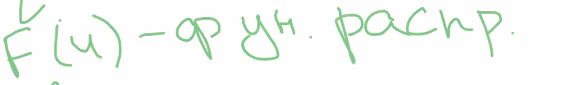 F(u) - фун. распр.